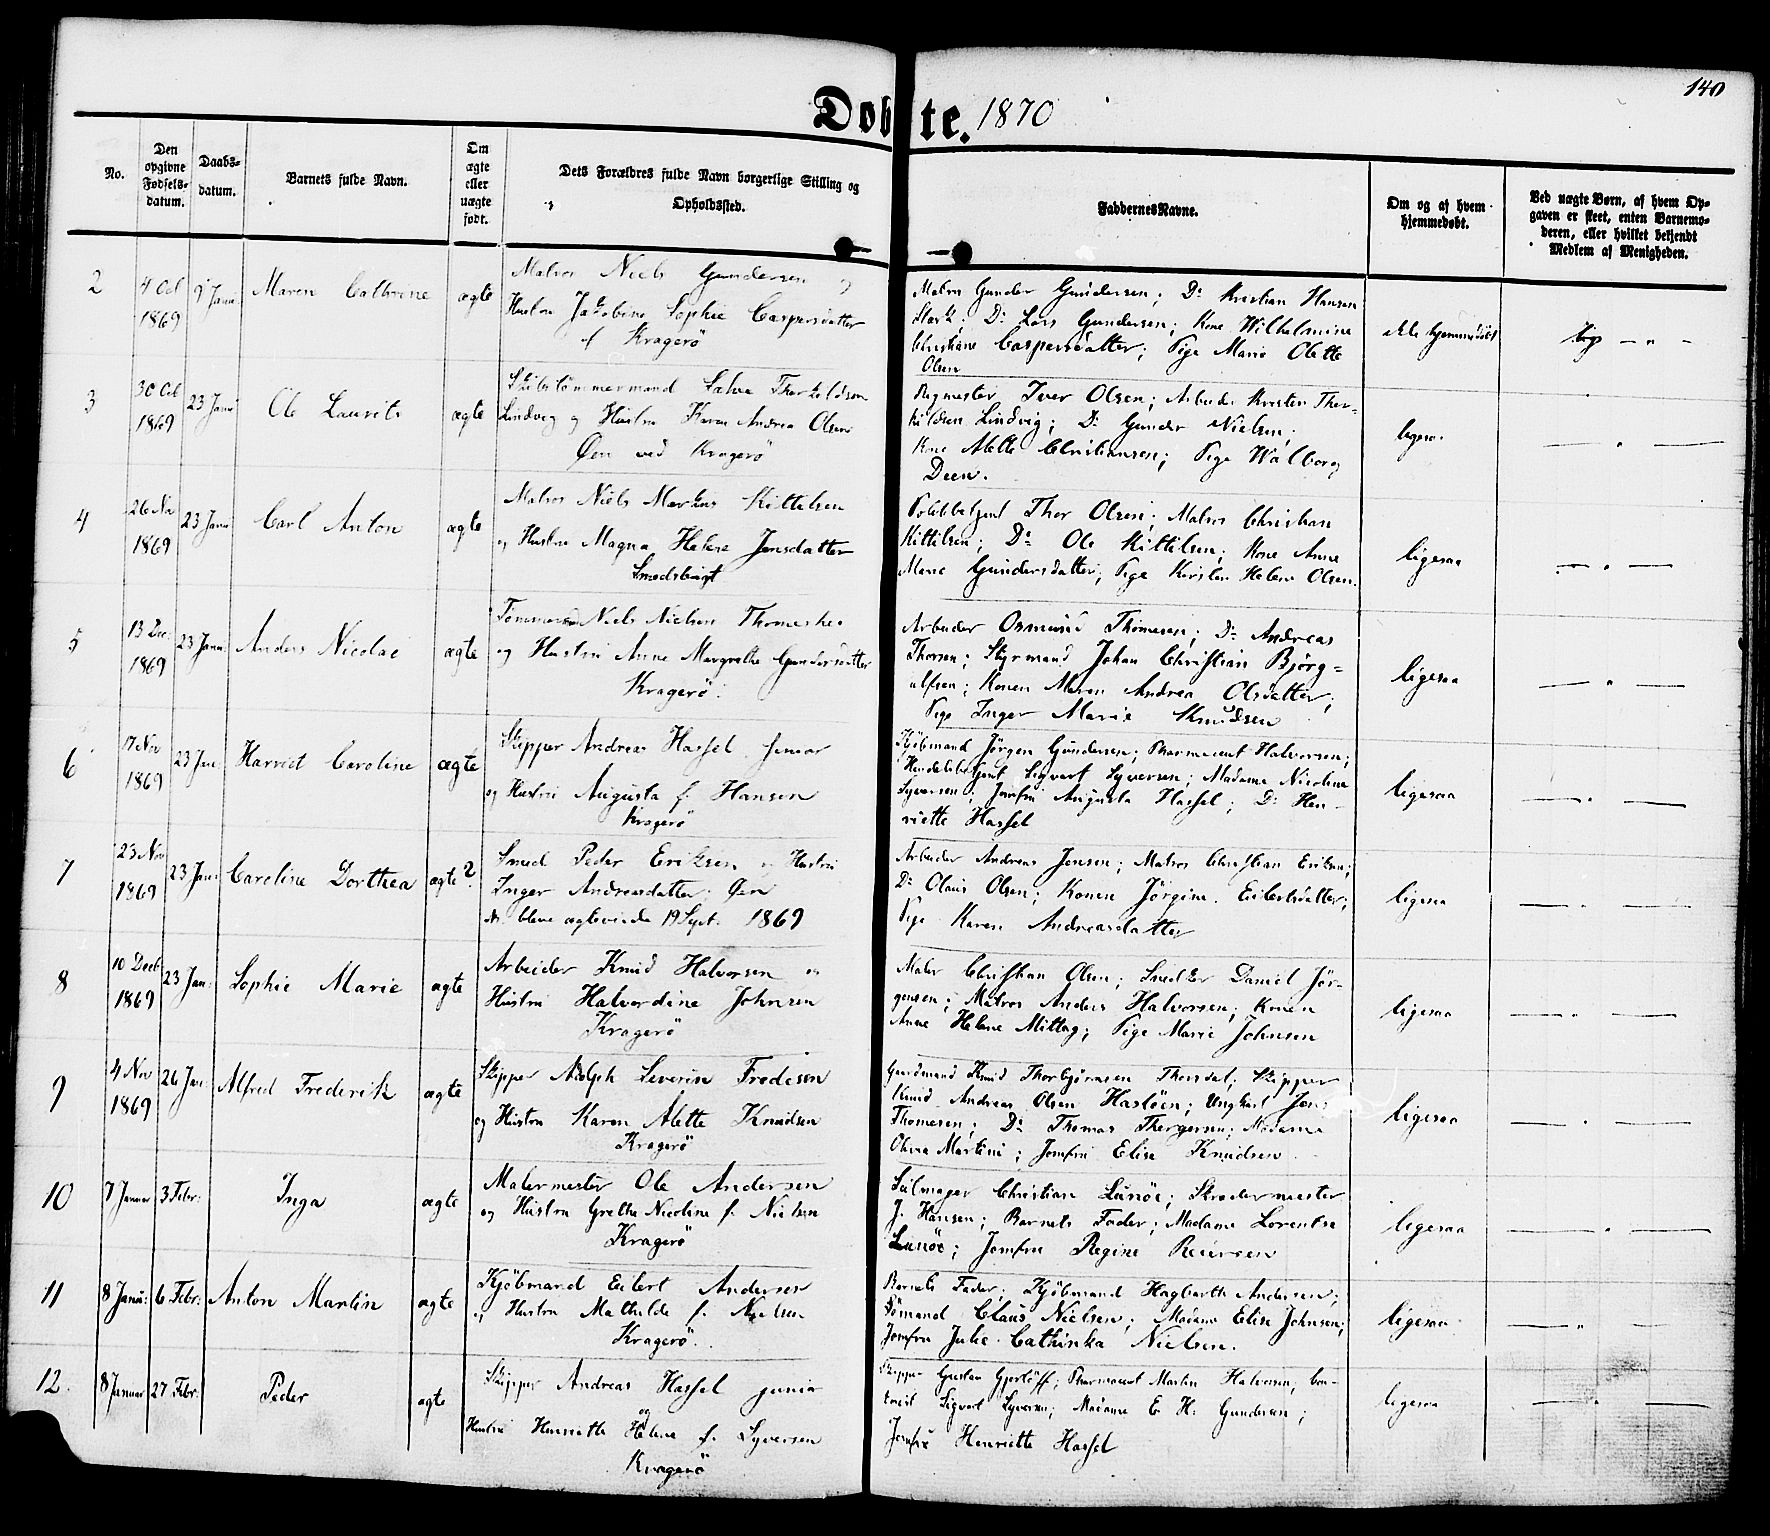 140
Døbte. 1870
No.
Den opgivne Fødsels-datum.
Daabs-datum.
Barnets fulde Navn.
Om ægte eller uægte født.
Dets Forældres fulde Navn borgerlige Stilling og Opholdssted.
Faddernes Navne.
Om og af hvem hjemmedøbt.
Ved uægte Børn, af hvem Op-
gaven er skeet, enten Barnemo-
deren, eller hvilket bekjendt
Medlem af Menigheden.
2 4 Oct 1869 9 Janu: Maren Cathrine ægte
Matros Niels Gundersen og
Hustru Jakobine Sophie Caspersdatter
af Kragerö
Matros Gunder Gundersen; Do Kristian Hansen
Do Lars Gundersen; Kone Wilhelmine
Christiane Caspersdatter; Pige Marie Olette
Olsen
ikke hjemmedöbt
3 30 Oct 1869 23 Janu: Ole Laurits ægte
Skibstömmermand Salve Therkeldsen
Lindvig og Hustru Karen Andrea Olsen
Øen ved Kragerö
Rigmester Iver Olsen; Arbeider Kristen Ther-
kildsen Lindvig; Do Gunder Nielsen;
Kone Mette Christiansen; Pige Walborg
Deen.
ligesaa
4 26 Nov 1869 23 Janu: Carl Anton ægte
Matros Niels Markus Kittilsen
og Hustru Magna Helene Jensdatter
Smedsbugt
Politibetjent Thor Olsen; Matros Christian
Kittilsen; Do Ole Kittilsen; Kone Anne
Marie Gundersdatter; Pige Kirsten Helene Olsen.
ligesaa
5 13 Dec: 1869 23 Janu: Anders Nicolai ægte
Tömmermand Niels Nielsen Thomesheo
og Hustru Anne Margrethe Gundersdatter
Kragerö.
Arbeider Osmund Thomesen; Do Andreas
Thorsen; Styrmand Johan Christian Björg-
ulfsen; Konen Maren Andrea Olsdatter;
Pige Inger Marie Knudsen
ligesaa
6 17 Nov 1869 23 Jan: Harriet Caroline ægte
Skipper Andreas Hassel junior
og Hustru Augusta f. Hansen
Kragerö
Kjöbmand Jörgen Gundersen; Pharmaceut Halvorsen;
Handelsbetjent Sigvart Syversen; Madame Nicoline
Syversen; Jomfru Augusta Hassel; Do Hen-
riette Hassel
ligesaa
7 23 Nov 1869 23 Jan: Caroline Dorthea ægte?
Smed Peder Eriksen og Hustru
Inger Andreasdatter. Øen
de bleve ægteviede 19 Sept. 1869
Arbeider Andreas Jensen; Matros Christian Eriksen;
Do Olaus Olsen; Konen Jörgine Eilertsdatter;
Pige Karen Andreasdatter
ligesaa
8 10 Decb 1869 23 Jan: Sophie Marie ægte
Arbeider Knud Halvorsen og
Hustru Halvordine Johnsen
Kragerö
Maler Christian Olsen; Snedker Daniel Jör-
gensen; Matros Anders Halvorsen; Konen
Anne Helene Mittag; Pige Marie Johnsen
ligesaa
9 4 Nov 1869 26 Jan: Alfred Frederik ægte
Skipper Adolph Severin Fredesen
og Hustru Karen Alette Knudsen
Kragerö
Gaardmand Knud Thorbjörnsen Thorsdal; Skipper
Knud Andreas Olsen Haslöen; Ungkarl Jens
Thomesen; Do Thomas Thorgersen; Madame
Olava Martini; Jomfru Elise Knudsen
ligesaa
10 7 Januar 3 Febr: Inga ægte
Malermester Ole Andersen
og Hustru Grethe Nicoline f. Nielsen
Kragerö
Seilmager Christian Lunöe; Skredermester
J. Hansen; Barnets Fader; Madame Lorentse
Lunöe; Jomfru Regine Reiersen
ligesaa
11 8 Janu: 6 Febr: Anton Martin ægte
Kjöbmand Eilert Andersen
og Hustru Mathilde f. Nielsen
Kragerö.
Barnets Fader; Kjöbmand Hagbarth Andersen;
Sömand Claus Nielsen; Madame Elise Johnsen;
Jomfru Julie Cathinka Nielsen.
ligesaa
12. 8 Januar 27 Febr: Peder ægte
Skipper Andreas Hassel junior
og
Hustru Henriette Helene f. Syversen
Kragerö
Skipper Gustav Gjerlöff; Pharmaceut Martin Halvorsen; Con-
torist Sigvart Syversen; Madame E H: Gundersen;
Jomfru Henriette Hassel
ligesaa